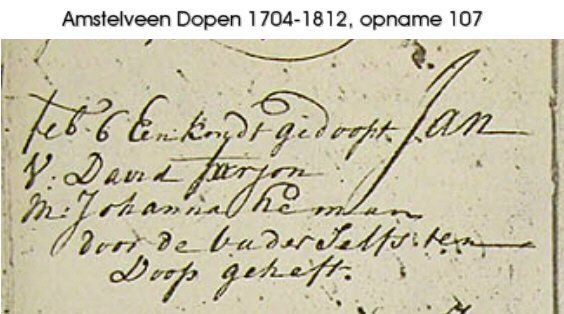 Amstelveen Dopen 1704-1812, opname 107
Feb. 6 Een kondt gedoopt Jan
V: David Tarjon
M: Johanna Heman
door de vader selfs ten
Doop geheft.